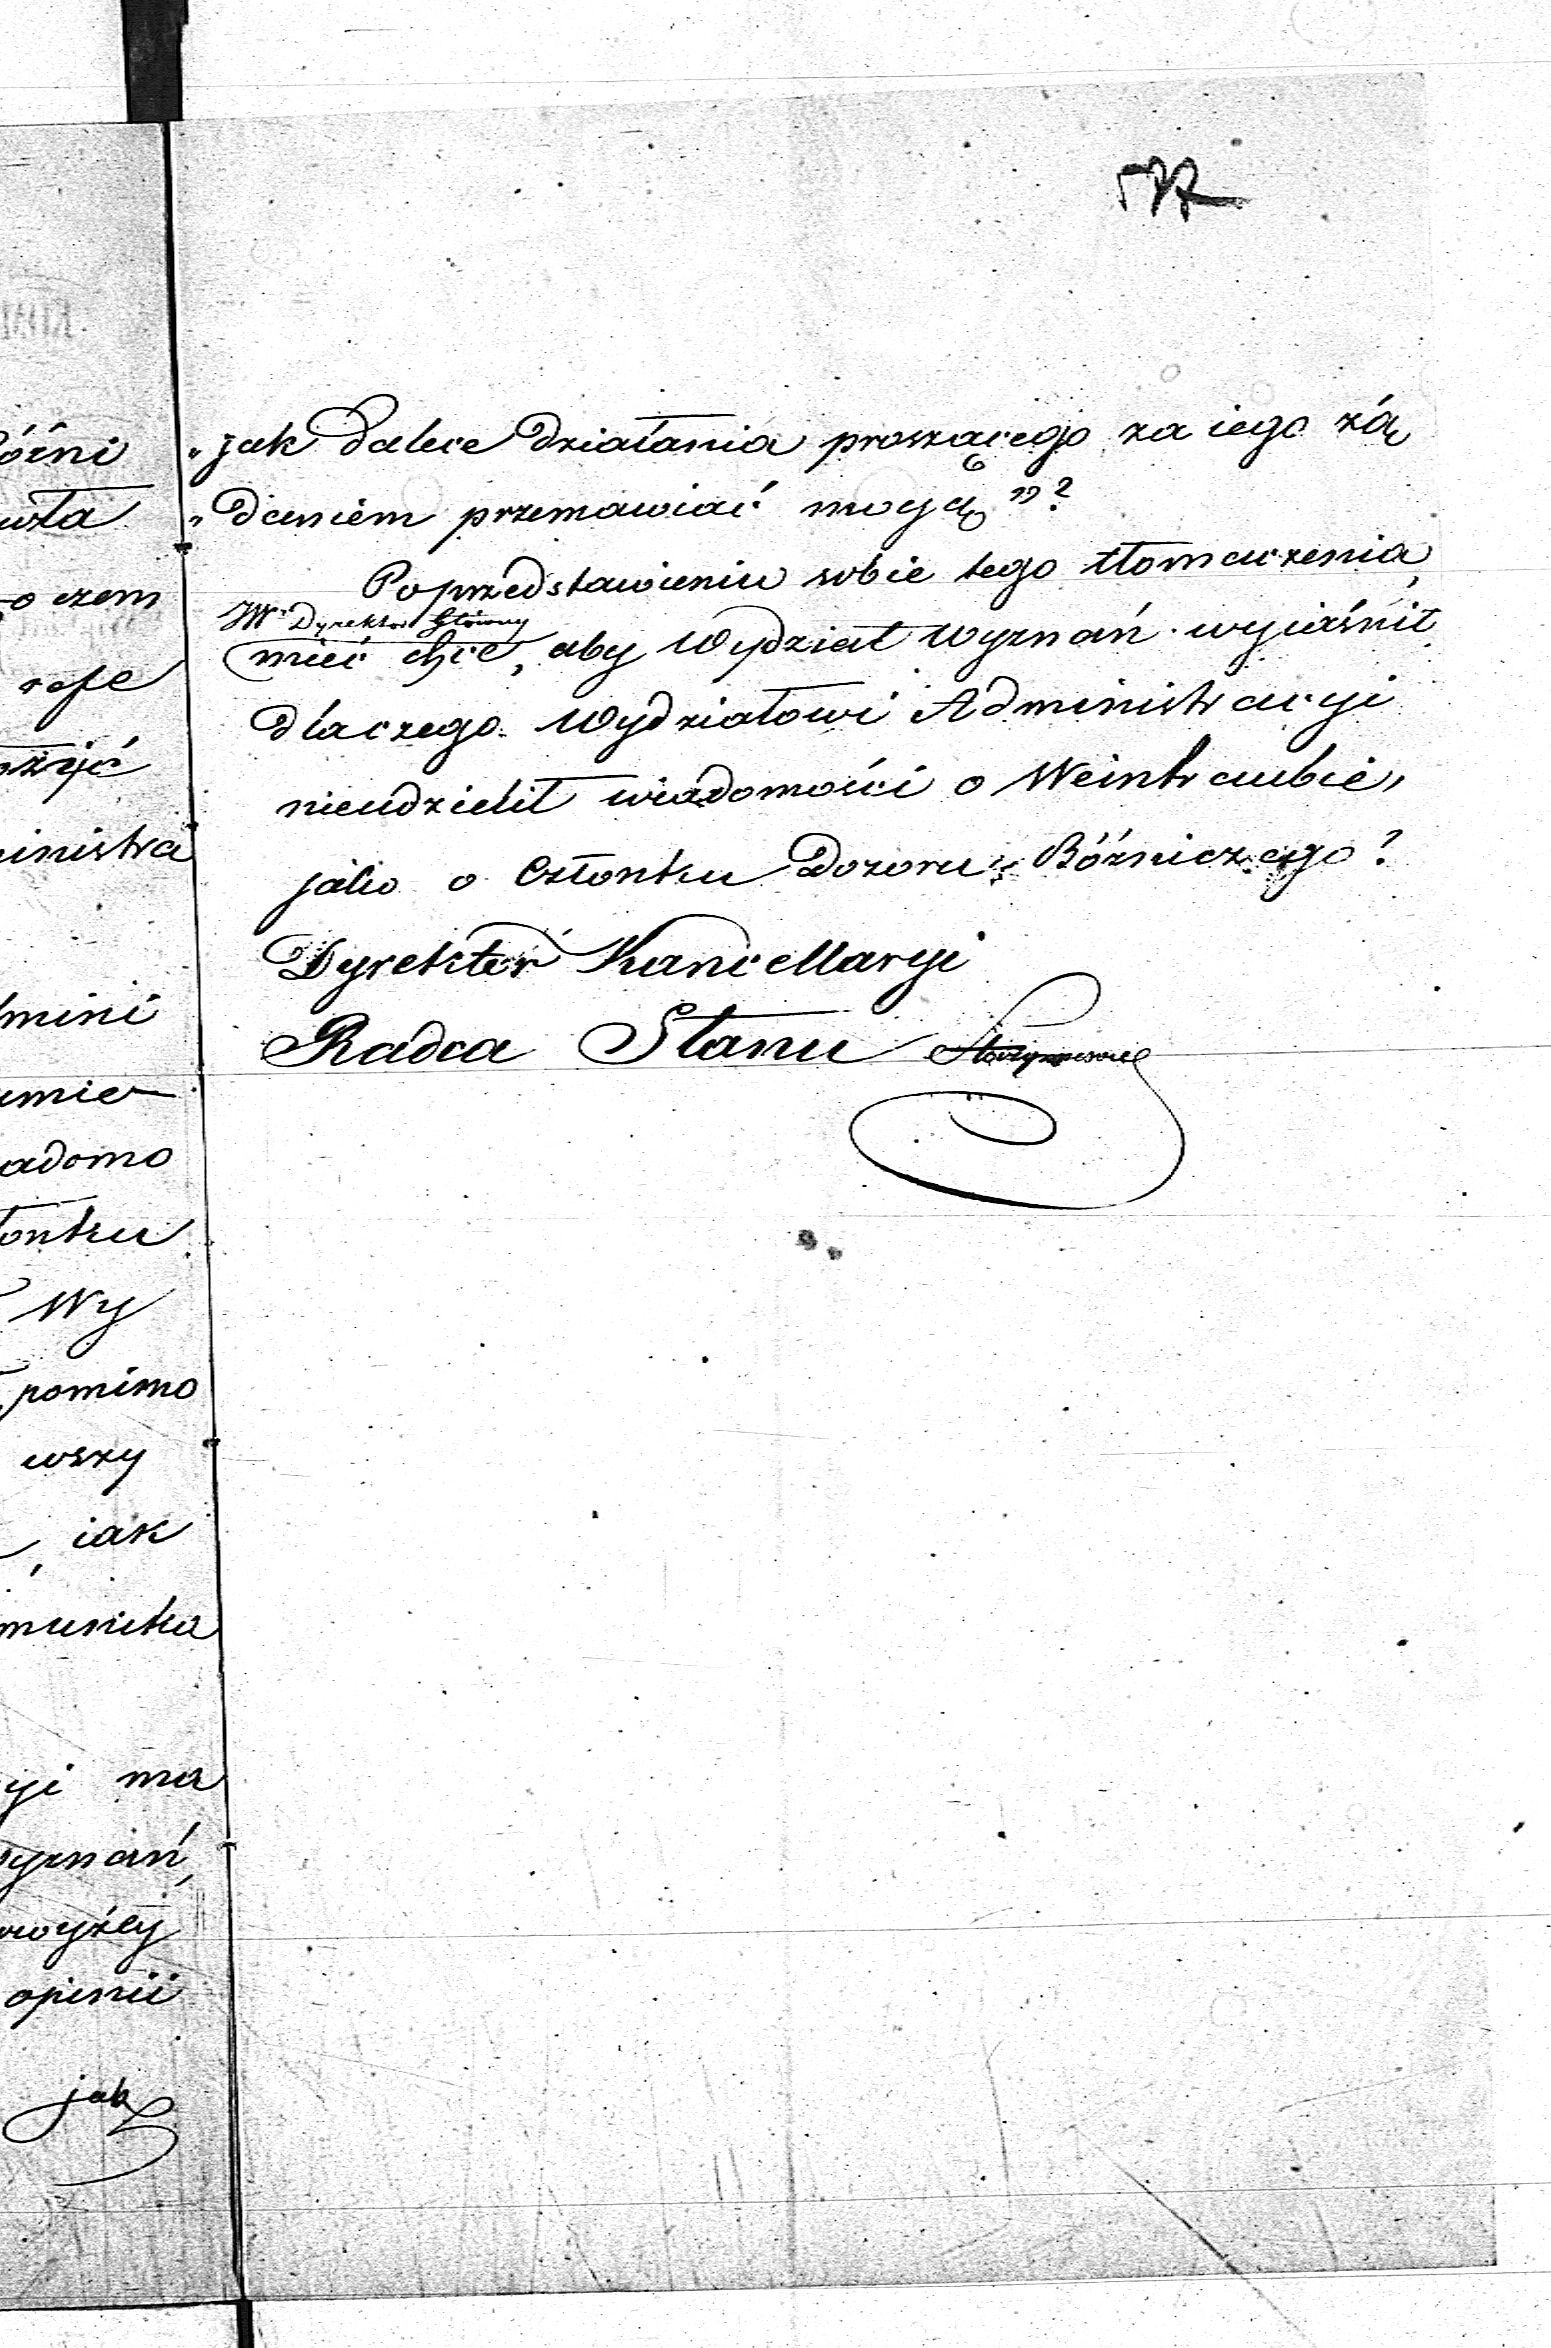 577
„jak dalece działania proszącego za iego żą
„daniem przemawiać mogą"?
Po przedstawieniu sobie tego tłomaczenia,
JW. Dyrektor Główny
mieć chce, aby Wydział Wyznań wyiaśnił
dlaczego Wydziałowi Administracyi
nieudzielił wiadomości o Weintraubie,
jako o Członku Dozoru Bóżniczego?
Dyrektor Kancellaryi
Radca Stanu
óżni
wła
o czem
rofe
ożyć
inistra
mini
umie
adomo
łonku
Wy
pomimo
wszy
iak
munika
yi ma
yznań
wyżey
opinii
jak